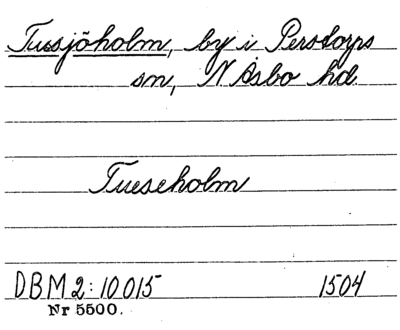 Tussjöholm, by i Perstorps
sn, N Åsbo hd.
Tueseholm
DBM 2:10015 1504
Nr 5500.